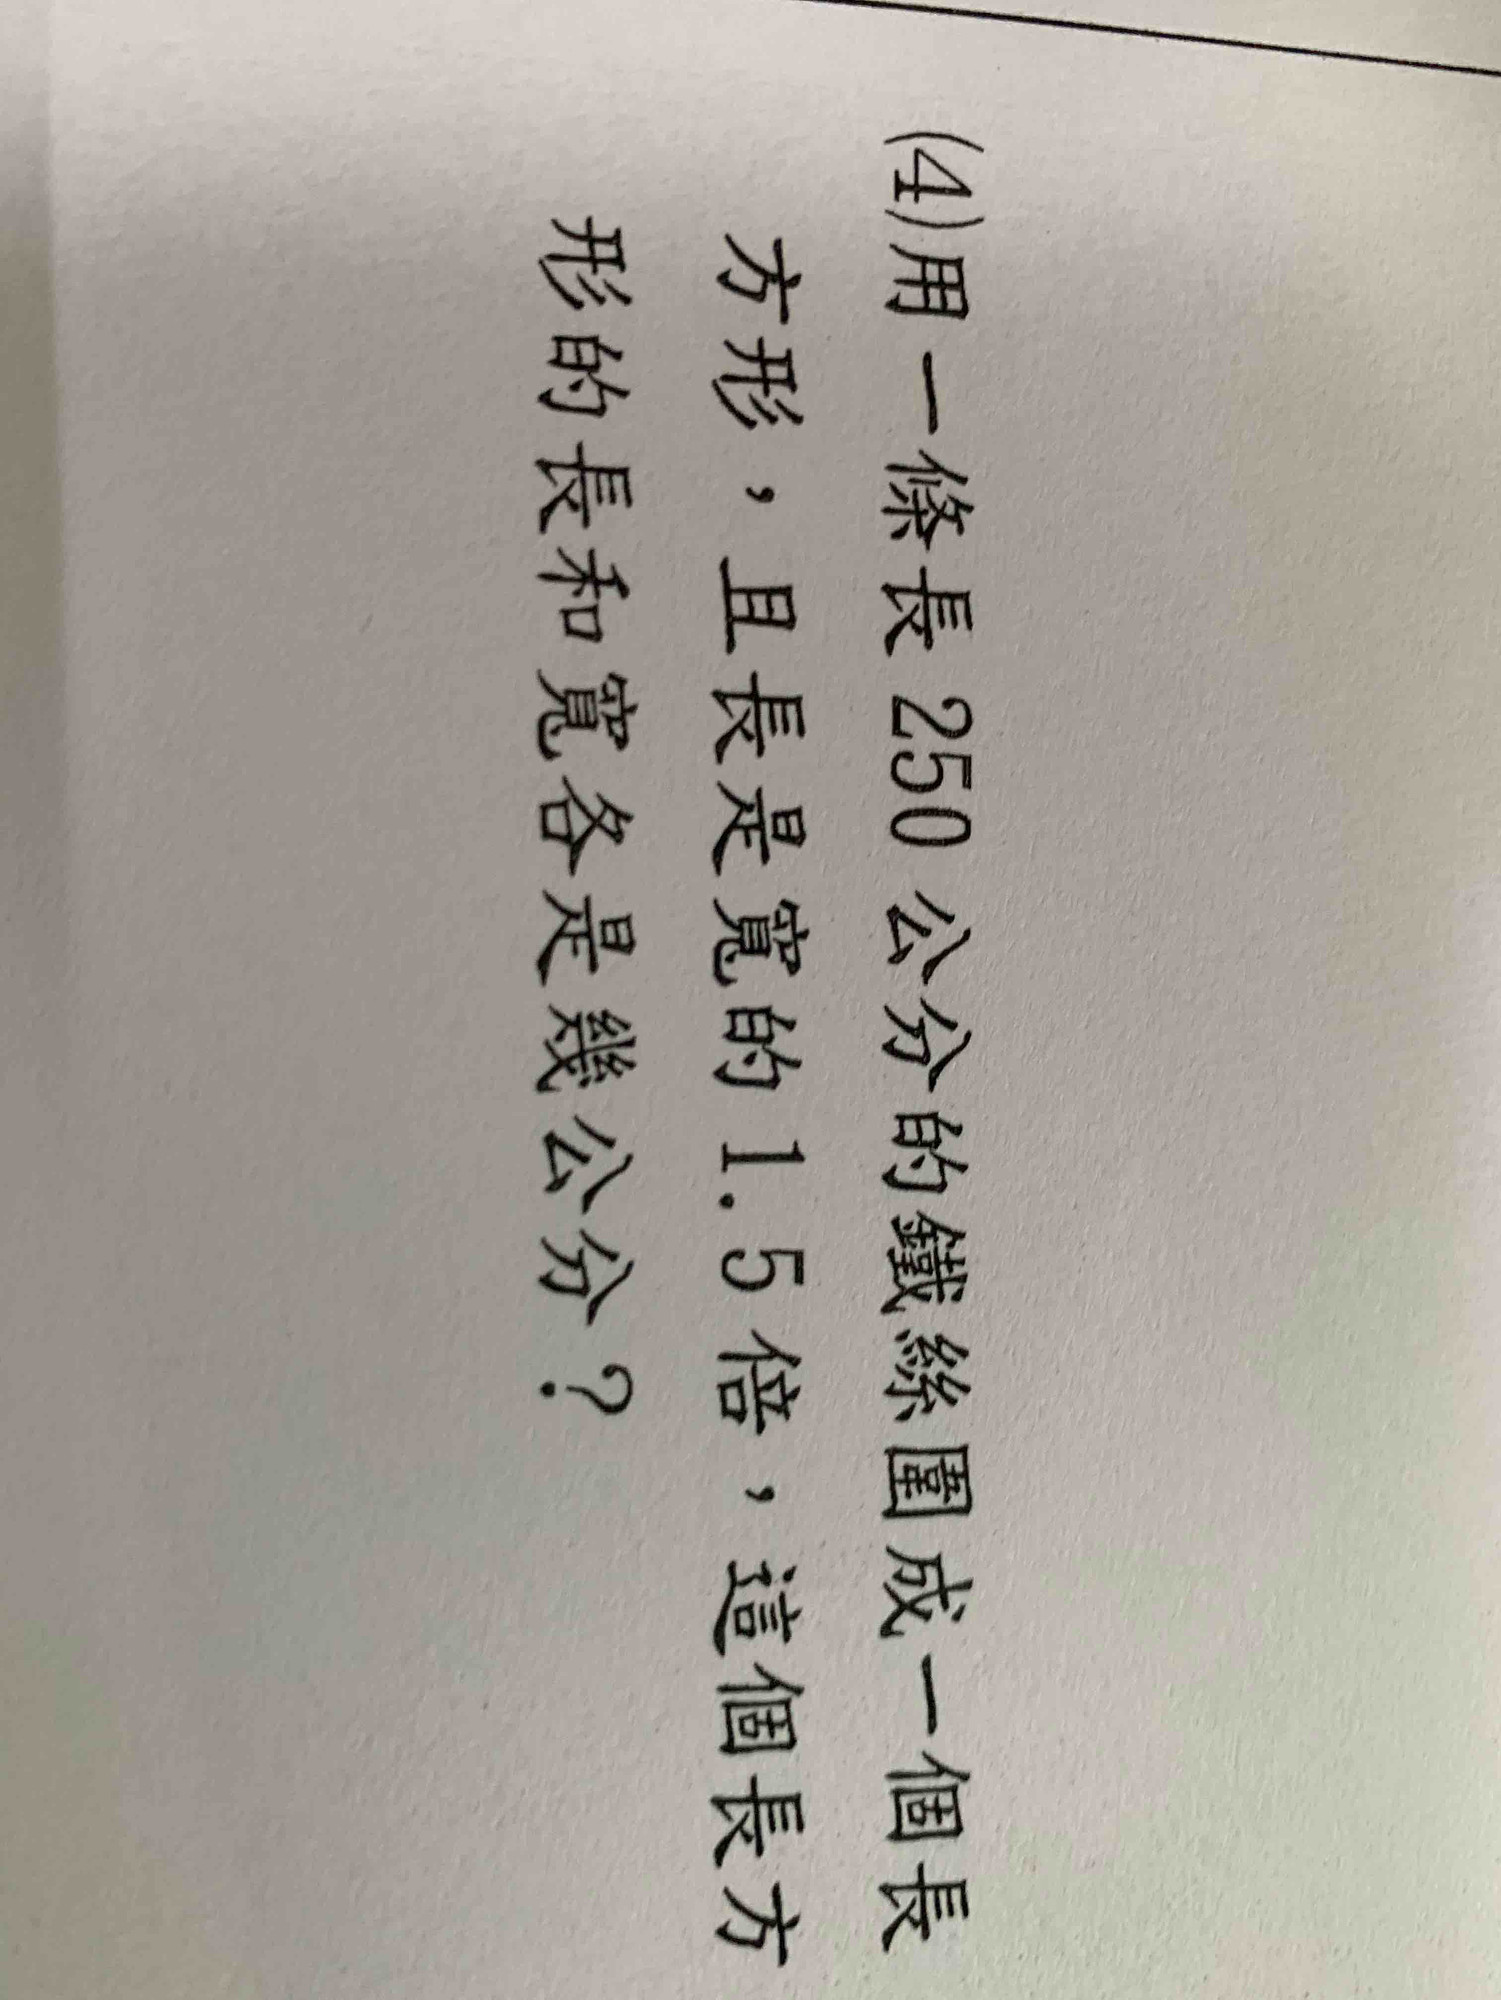 (4)用一條長250公分的鐵絲圍成一個長
方形，且長是寬的1.5倍，這個長方
形的長和寬各是幾公分？